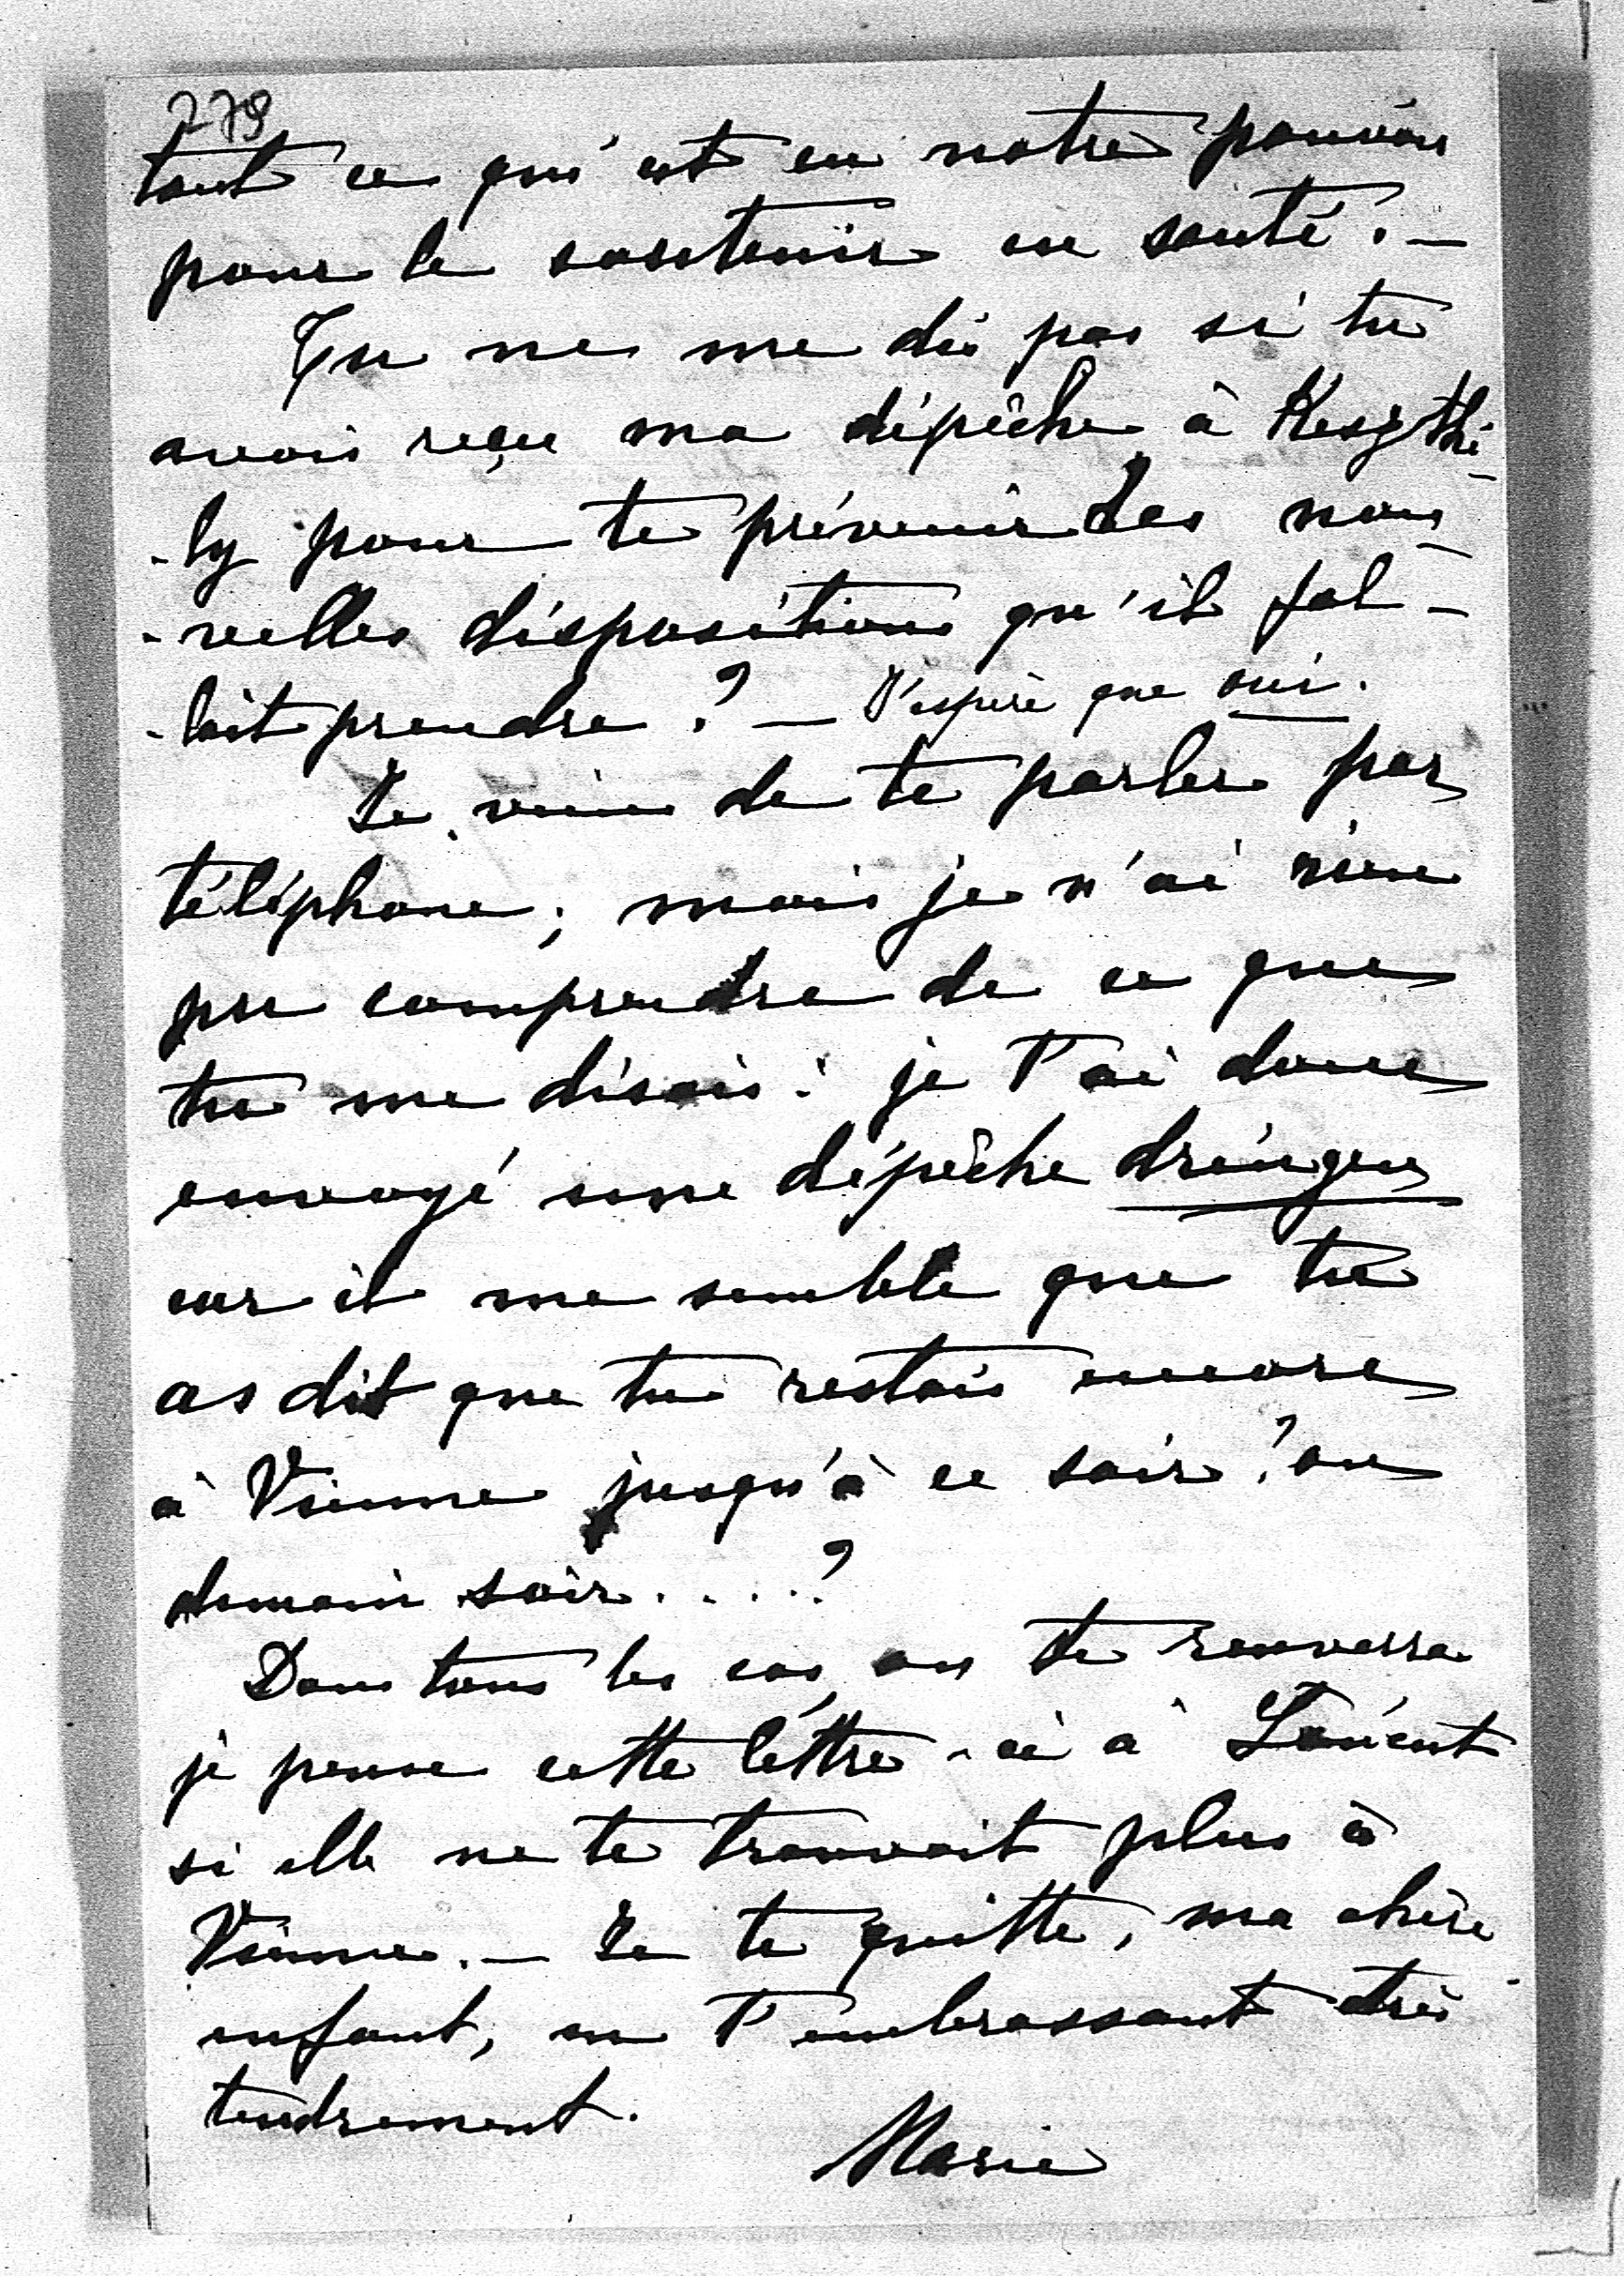 278
tout ce qui est en notre pouvoir
pour le soutenir en santé. —
Tu ne me dis pas si tu
avais reçu ma dépêche à Keszthé-
-ly pour te prévenir des nou-
-velles dispositions qu'il fal-
-lait prendre ? — J'espère que oui.
Je viens de te parler par
téléphone ; mais je n'ai rien
pu comprendre de ce que
tu me disais : je t'ai donc
envoyé une dépêche dringen
car il me semble que tu
as dit que tu restais encore
à Vienne jusqu'à ce soir ? ou
demain soir . . . . ?
Dans tous les cas, on te renverra
je pense cette lettre-ci à
si elle ne te trouvait plus à
Vienne. — Je te quitte, ma chère
enfant, en t'embrassant très
tendrement.
Marie